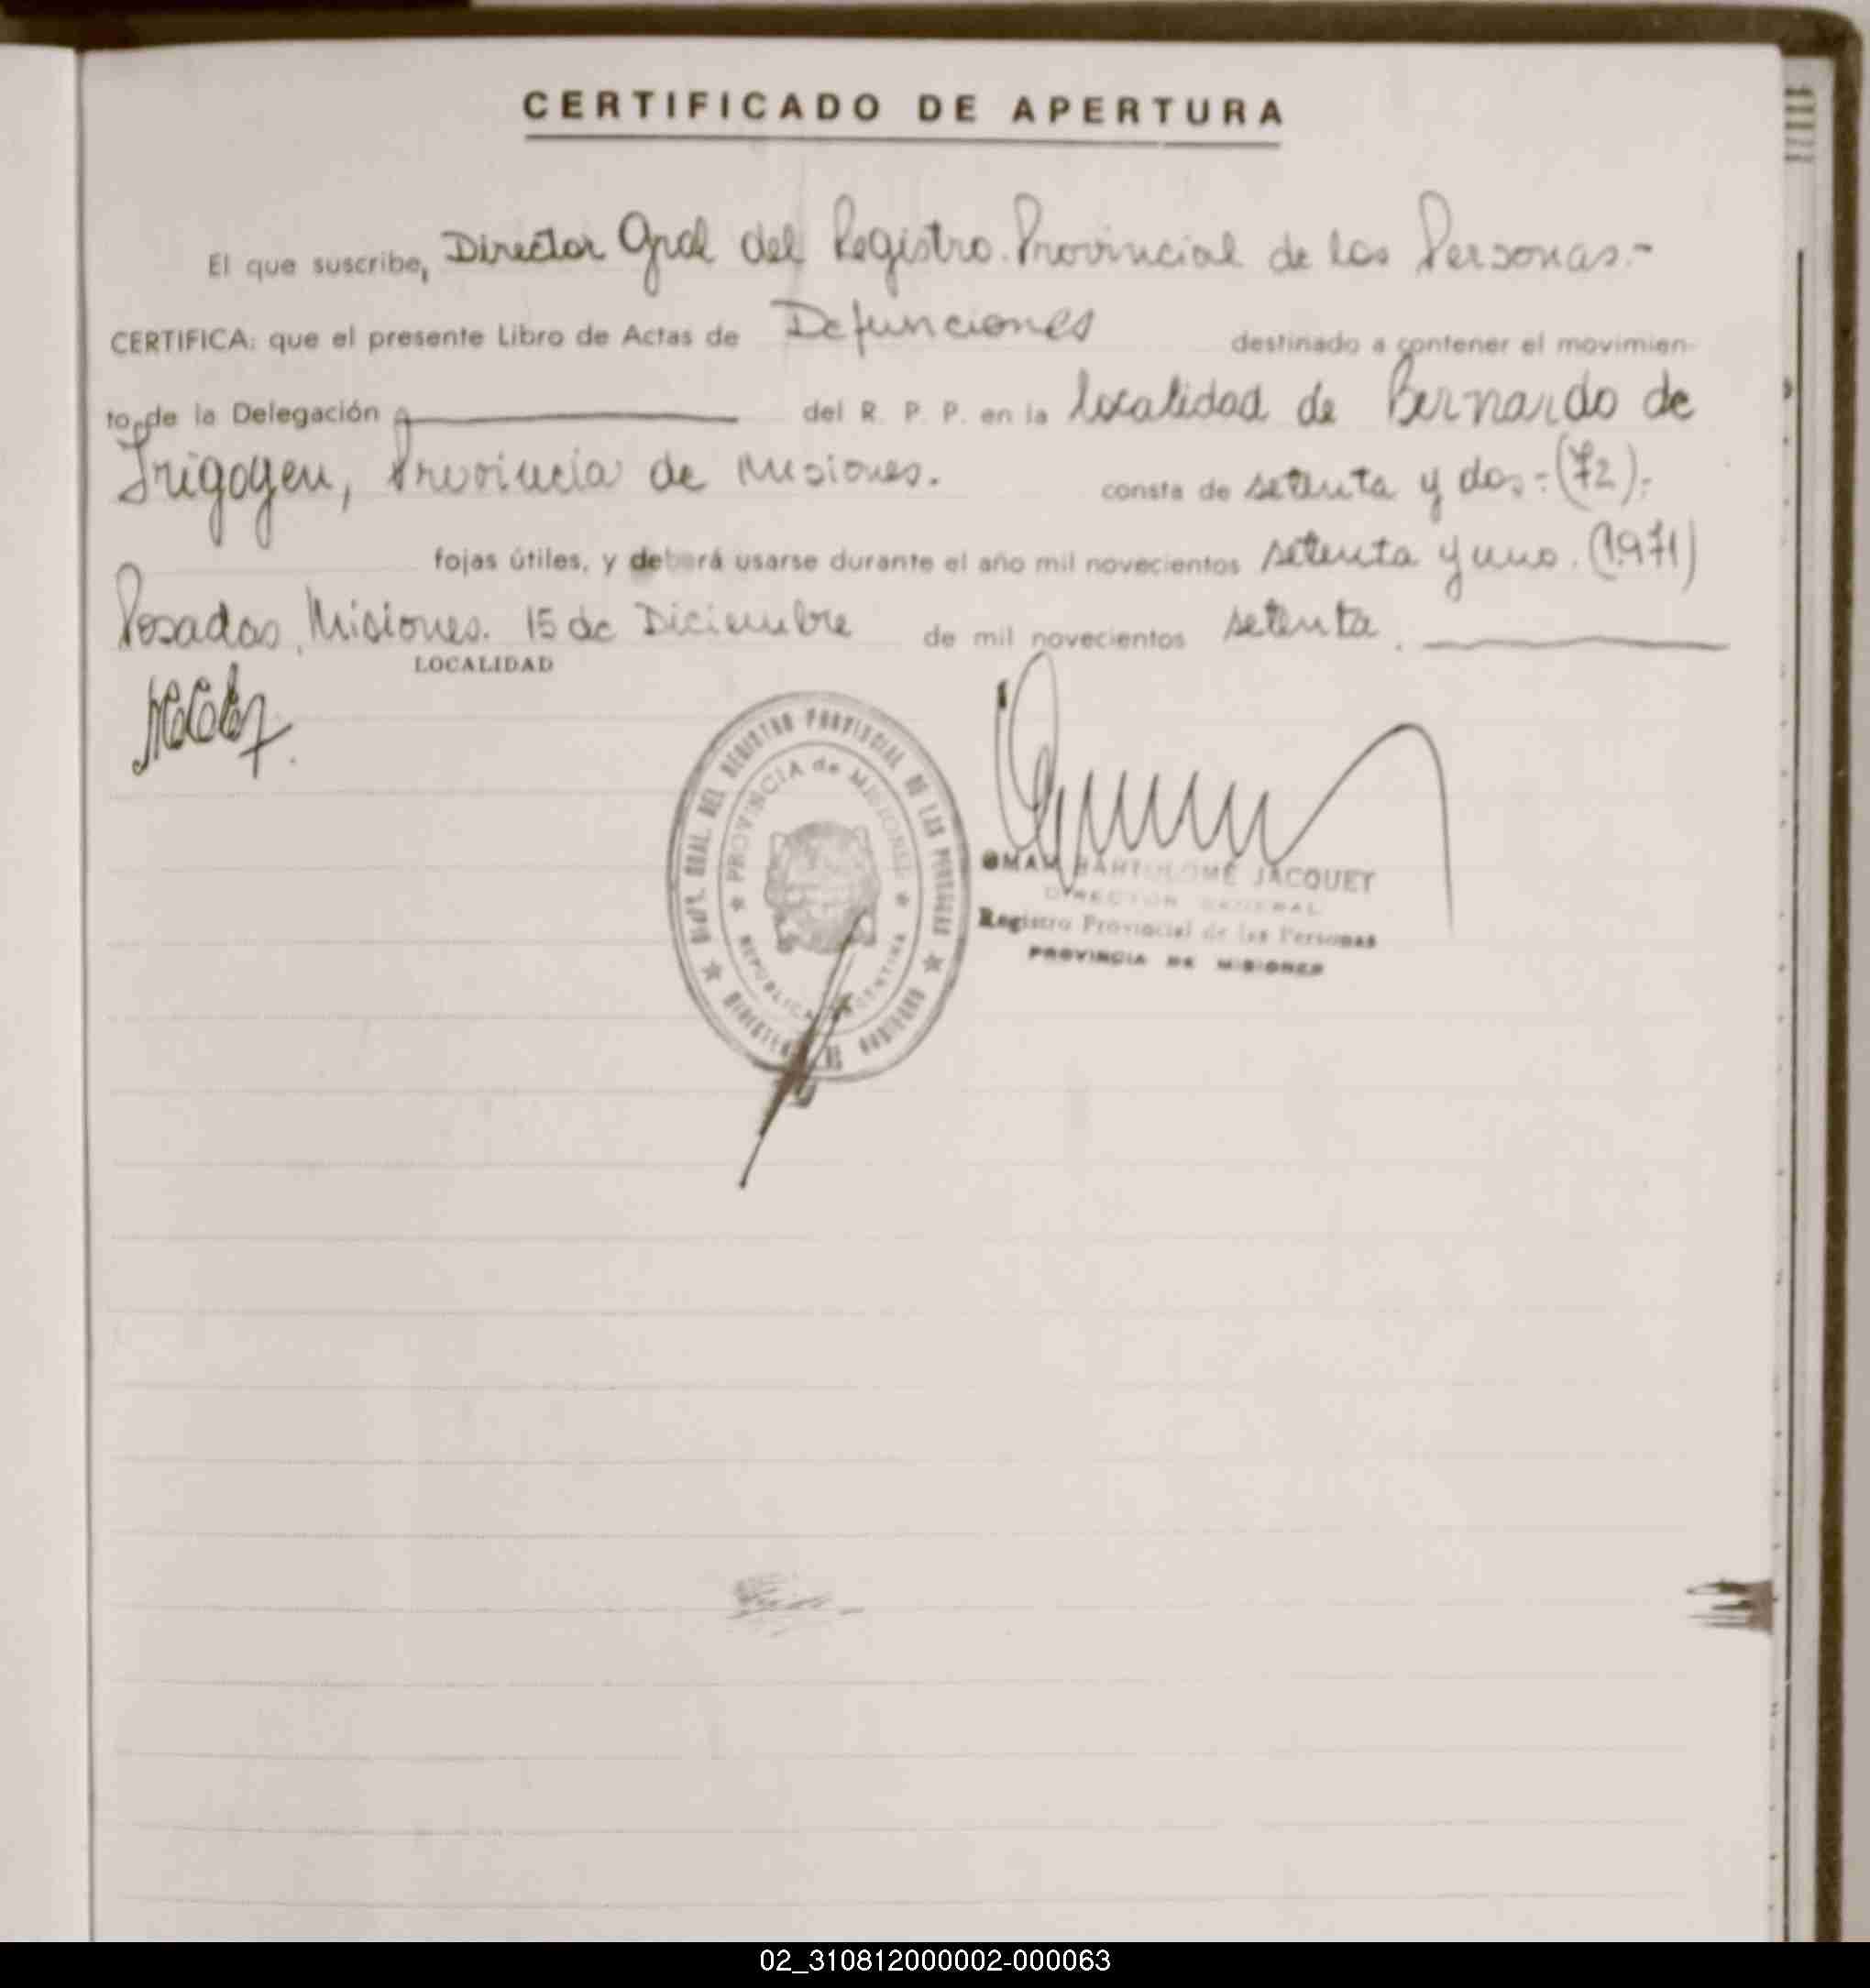 CERTIFICADO DE APERTURA
El que suscribe, Director Gral del Registro Provincial de las Personas.-
CERTIFICA: que el presente Libro de Actas de Defunciones destinado a contener el movimien-
to de la Delegación del R. P. P. en la localidad de Bernardo de
Irigoyen, Provincia de Misiones. consta de setenta y dos.-(72).-
fojas útiles, y deberá usarse durante el año mil novecientos setenta y uno. (1971)
Posadas, Misiones. 15 de Diciembre de mil novecientos setenta.
LOCALIDAD
DEL REGISTRO PROVINCIAL DE LAS PERSONAS
PROVINCIA de MISIONES
REPUBLICA ARGENTINA
BARTOLOMÉ JACQUET
DIRECTOR GENERAL
Registro Provincial de las Personas
PROVINCIA DE MISIONES
02_310812000002-000063